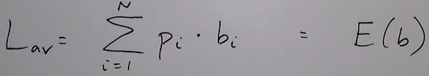 L_av = \sum_{i=1}^{N} p_i · b_i = E(b)